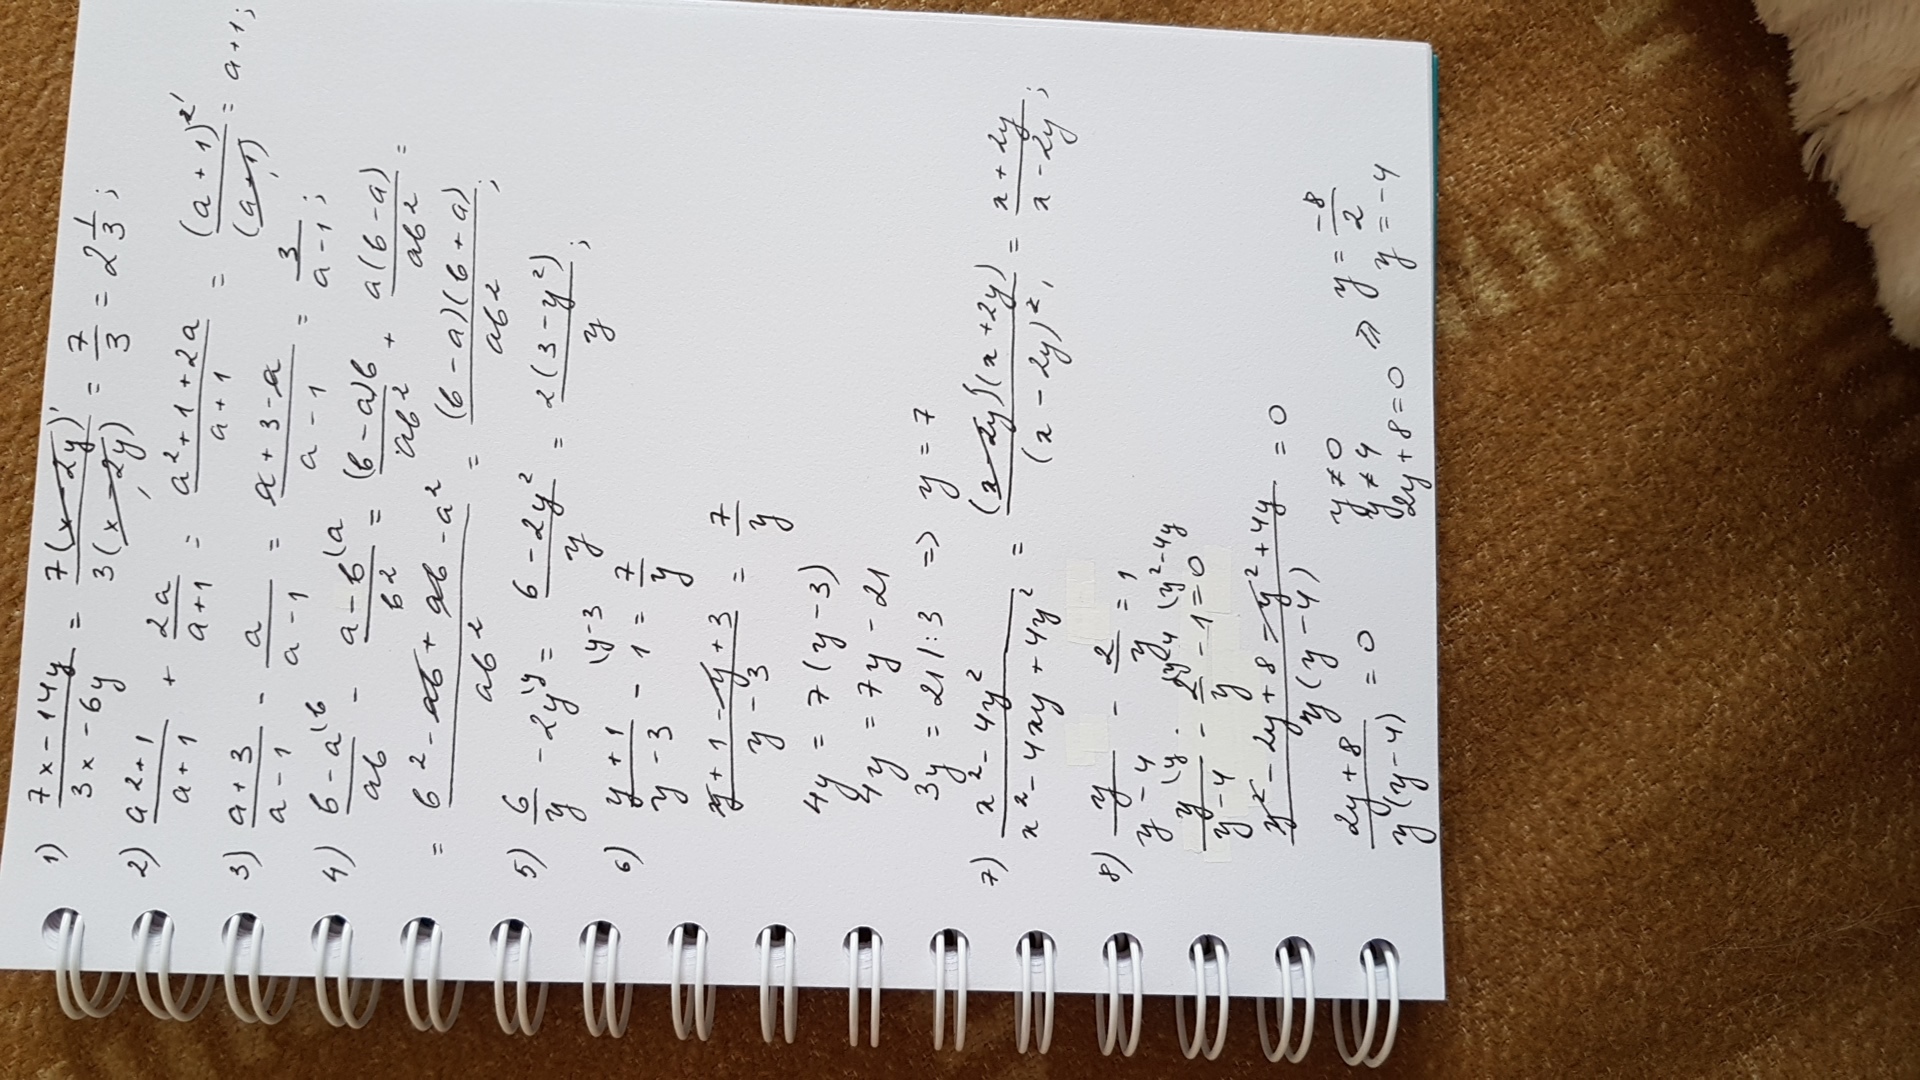 1) (7x - 14y)/(3x - 6y) = 7(x - 2y)¹/3(x - 2y)₁ = 7/3 = 2 1/3;
2) (a2+1)/(a+1) + 2a/(a+1) = (a²+1+2a)/(a+1) = (a+1)²'/(a+1) = a+1;
3) (a+3)/(a-1) - a/(a-1) = (a+3-a)/(a-1) = 3/(a-1);
4) (b-a\b)/ab - (a-b\a)/b² = (b-a)b/ab² + a(b-a)/ab² =
= (b² - ab + ab - a²)/ab² = (b-a)(b+a)/ab²;
5) 6/y - 2y\y = (6-2y²)/y = 2(3-y²)/y;
6) (y+1)/(y-3) - 1\y-3 = 7/y
(y+1-y+3)/(y-3) = 7/y
4y = 7(y-3)
4y = 7y - 21
3y = 21 |:3 => y = 7
7) (x²-4y²)/(x²-4xy+4y²) = (x-2y)(x+2y)/(x-2y)² = (x+2y)/(x-2y);
8) y/(y-4) - 2/y = 1
y\y/(y-4) - 2\y-4/y - 1\y²-4y = 0
(y²-2y+8-y²+4y)/y(y-4) = 0
(2y+8)/y(y-4) = 0
y ≠ 0
y ≠ 4
2y+8=0 => y = -8/2
y = -4